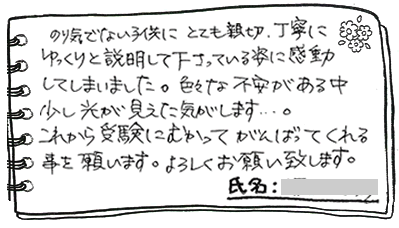 のり気でない子供に とても親切、丁寧に
ゆっくりと説明して下さっている姿に感動
してしまいました。色々な不安がある中
少し光が見えた気がします…。
これから受験にむかって がんばってくれる
事を願います。よろしくお願い致します。
氏名: